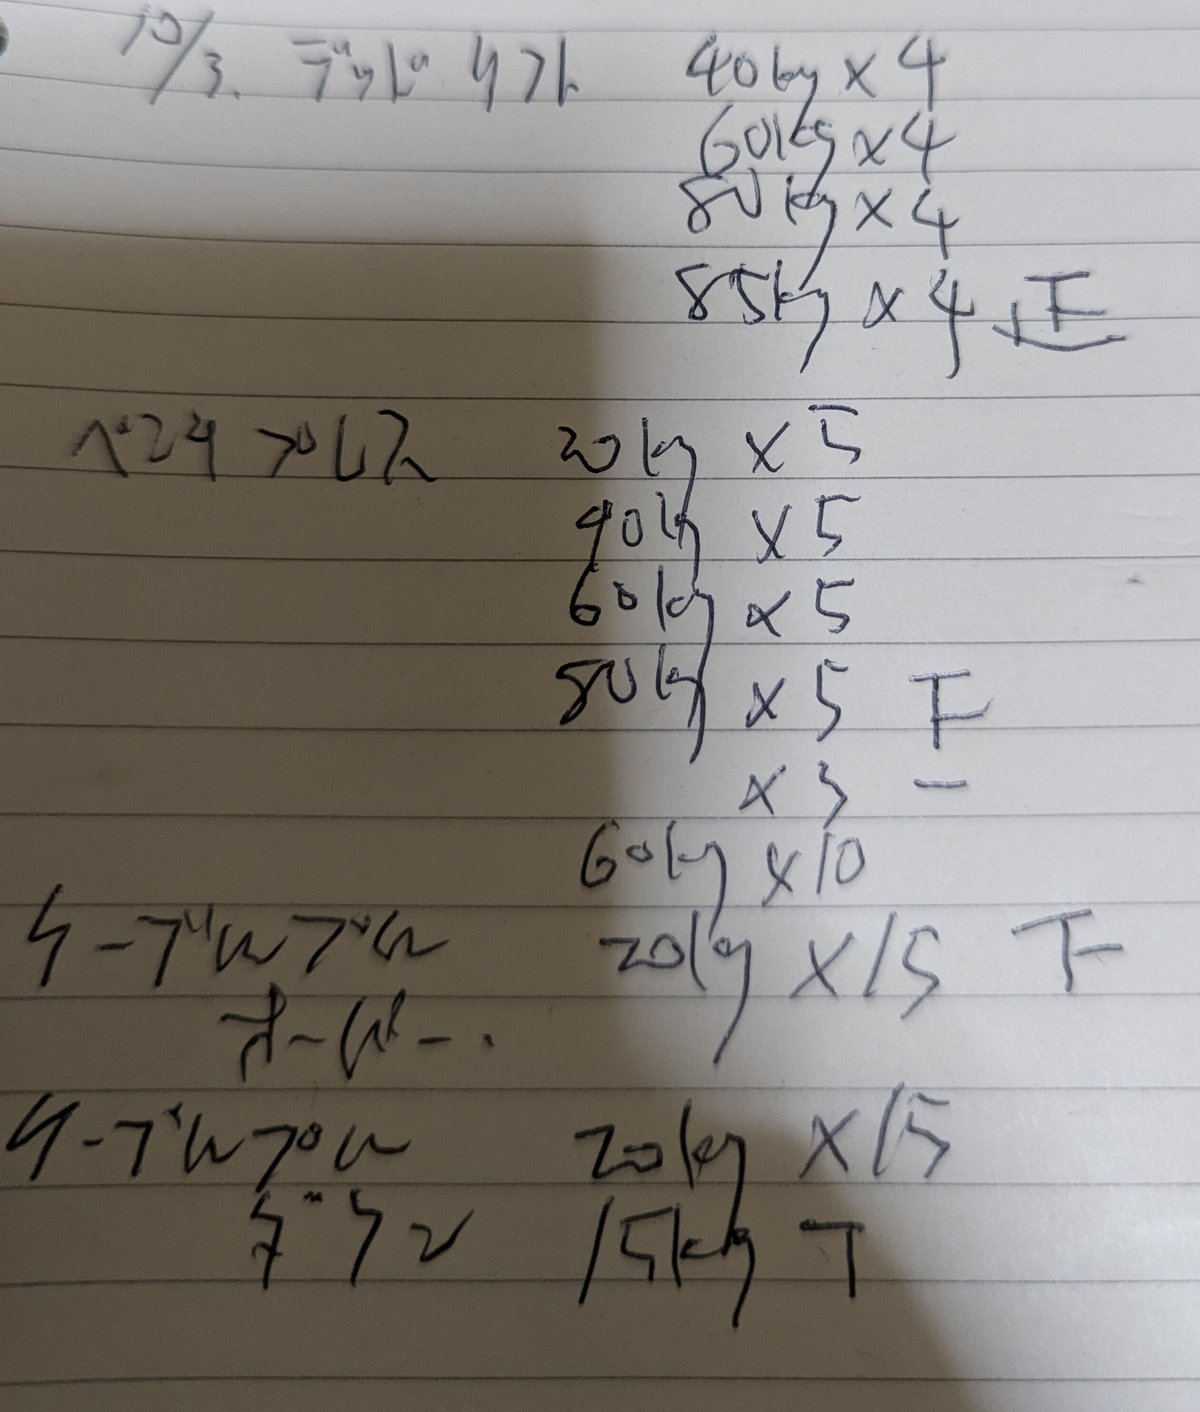 10/3. デッドリフト 40kg×4
60kg×4
80kg×4
85kg×4 正
ベンチプレス 20kg×5
40kg×5
60kg×5
80kg×5 下
×3 一
60kg×10
ケーブルプル 20kg×15 下
オーバー.
ケーブルプル 20kg×15
ダウン 15kg T